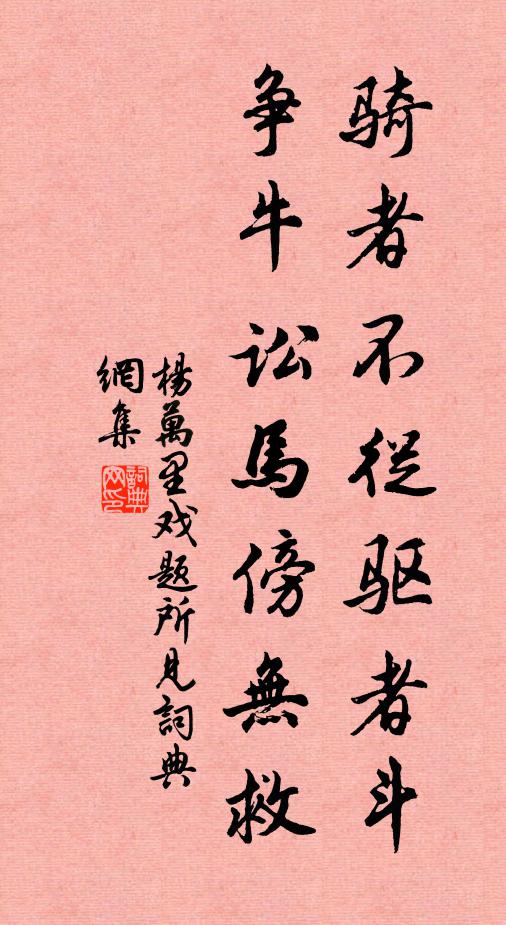 骑者不從驱者斗
争牛訟馬傍無救
楊萬里戏题所見詞典
網集
詞典
网印